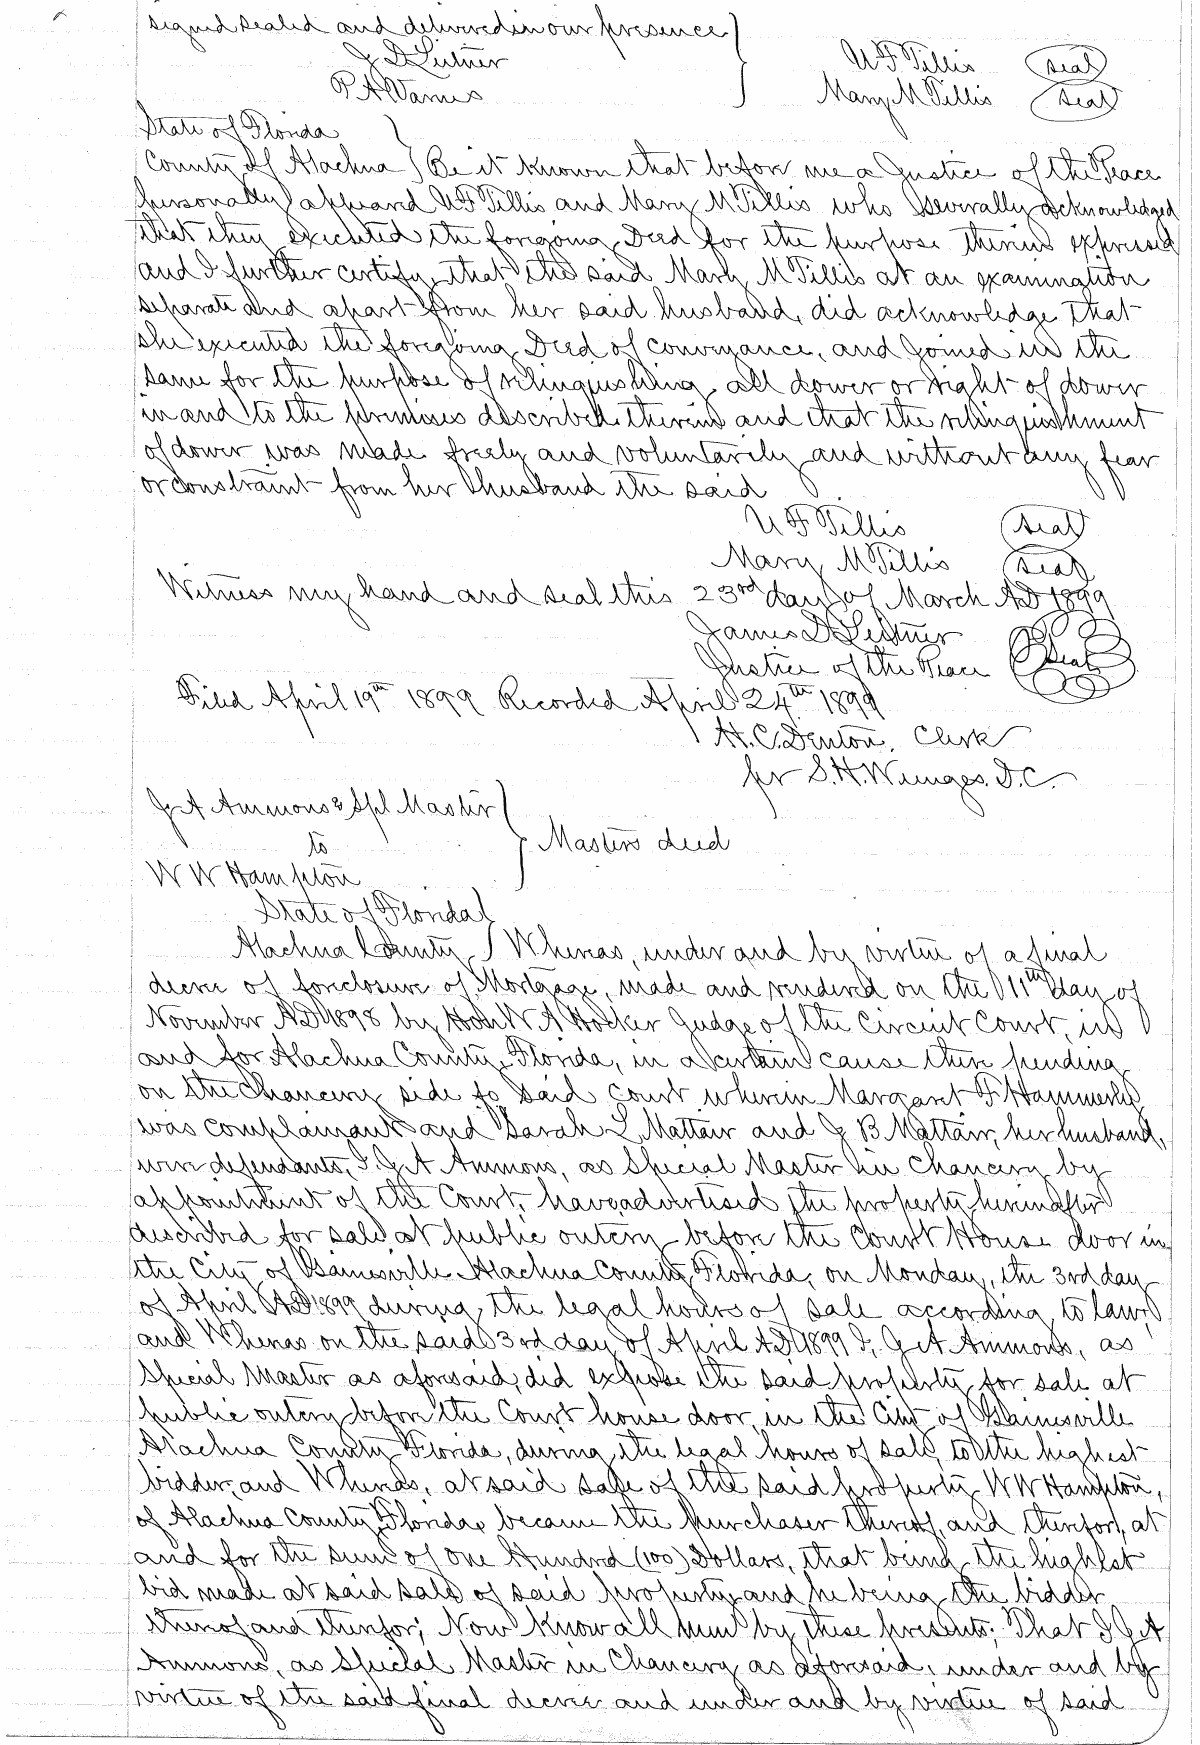 signed sealed and delivered in our presence
J D Leitner
U F Tillis Seal
P A Vames
Mary M Tillis Seal
State of Florida
County of Alachua } Be it known that before me a Justice of the Peace
personally appeared U F Tillis and Mary M Tillis who severally acknowledged
that they executed the foregoing Deed for the purpose therein expressed
and I further certify that the said Mary M Tillis at an examination
separate and apart from her said husband, did acknowledge that
she executed the foregoing Deed of conveyance, and joined in the
same for the purpose of relinquishing all dower or right of dower
in and to the premises described therein and that the relinquishment
of dower was made freely and voluntarily and without any fear
or constraint from her husband the said
U F Tillis Seal
Mary M Tillis Seal
Witness my hand and seal this 23rd day of March AD 1899
James D Leitner
Justice of the Peace Seal
Filed April 19th 1899 Recorded April 24th 1899
H. C. Denton, Clerk
per S. H. Wienges. D. C.
G A Ammons Spl Master
to } Masters deed
W W Hampton
State of Florida
Alachua County } Whereas, under and by virtue of a final
decree of foreclosure of Mortgage, made and rendered on the 11th day of
November AD 1898 by Hon W A Hocker Judge of the Circuit Court, in
and for Alachua County, Florida, in a certain cause then pending
on the Chancery side to said court wherein Margaret F Hammerly
was complainant and Sarah L. Mattair and J B Mattair, her husband,
were defendants, I, G A Ammons, as Special Master in Chancery by
appointment of the Court, have advertised the property hereinafter
described for sale at public outcry before the Court House door in
the City of Gainesville Alachua County Florida, on Monday, the 3rd day
of April AD 1899 during the legal hours of sale according to law,
and Whereas on the said 3rd day of April AD 1899 I, G A Ammons, as
Special Master as aforesaid, did expose the said property for sale at
public outcry before the Court house door, in the City of Gainesville
Alachua County Florida, during the legal hours of sale, to the highest
bidder, and Whereas, at said sale of the said property W W Hampton,
of Alachua County Florida, became the purchaser thereof, and therefor, at
and for the sum of One Hundred (100) Dollars, that being the highest
bid made at said sale of said property and he being the bidder
thereof and therefor; Now Know all men by these presents; That I G A
Ammons, as Special Master in Chancery as aforesaid, under and by
virtue of the said final decree and under and by virtue of said